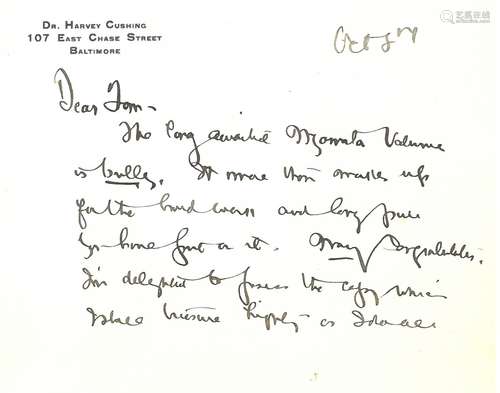 DR. HARVEY CUSHING
107 EAST CHASE STREET
BALTIMORE
Dear Tom -
The long awaited Volume
is bully. It more than makes up
for the hard work and long
you have put on it. Many Congratulations.
I'm delighted to possess the copy which
I shall treasure highly - as I do all